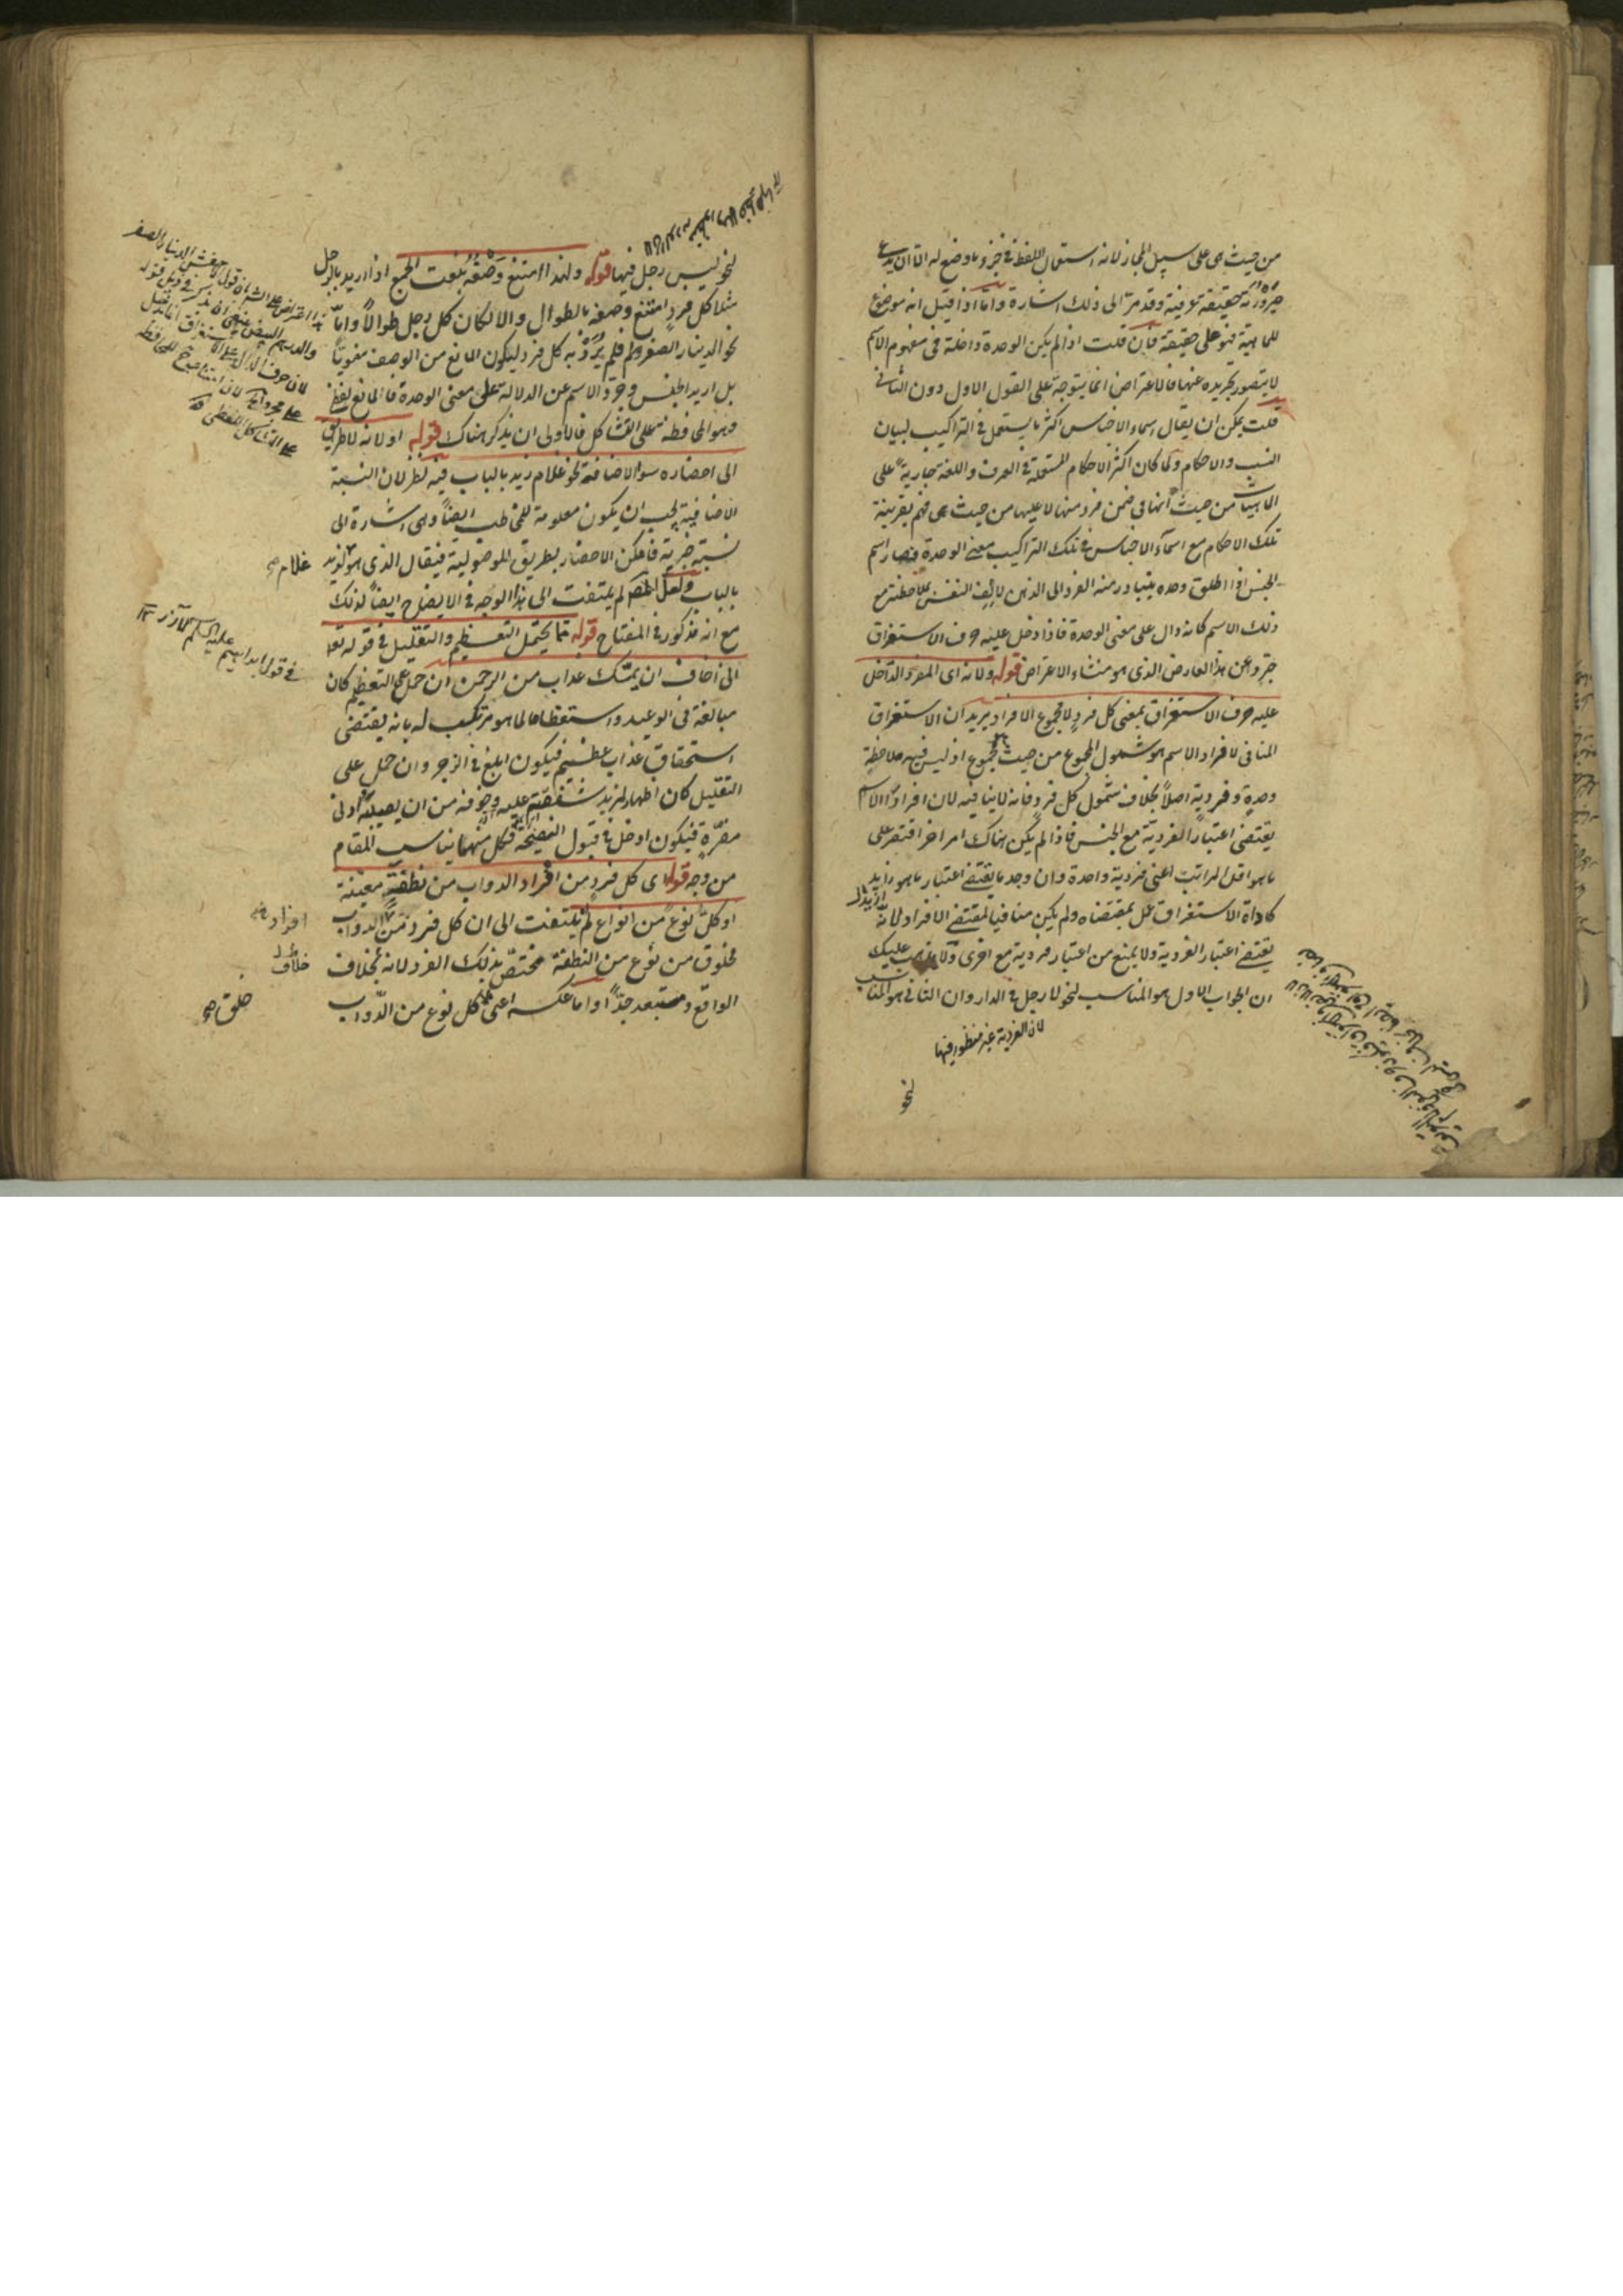 من حيث هى على سبيل المجاز لانه استعمال اللفظ فى جزء ما وضع له الا ان يدعى
صيرورته حقيقة عرفية وقد مرّ الى ذلك اشارة واما اذا قيل انه موضوع
للماهية فهو على حقيقة فان قلت اذا لم يكن الوحدة داخلة فى مفهوم الاسم
لا يتصور تجريده عنها فالاعتراض انما يتوجه على القول الاول دون الثانى
قلت يمكن ان يقال اسماء الاجناس اكثر ما يستعمل فى التراكيب لبيان
النسب والاحكام ولما كان اكثر الاحكام المستعملة فى العرف واللغة جارية على
الماهيات من حيث انها فى ضمن فرد منها لا عليها من حيث هى فهم بقرينة
تلك الاحكام مع اسماء الاجناس فى تلك التراكيب معنى الوحدة فصار اسم
الجنس اذا اطلق وحده يتبادر منه الفرد الى الذهن لالف النفس بملاحظته مع
ذلك الاسم كانه دال على معنى الوحدة فاذا دخل عليه حرف الاستغراق
جرد عن هذا العارض الذى هو منشاء الاعتراض قوله ولانه اى المفرد الداخل
عليه حرف الاستغراق بمعنى كل فرد لا مجموع الافراد يريد ان الاستغراق
المنافى لافراد الاسم هو شمول المجموع من حيث هو مجموع اذ ليس فيه ملاحظة
وحدة وفردية اصلاً بخلاف شمول كل فرد فانه لا ينافيه لان افراد الاسم
يقتضى اعتبار الفردية مع الجنس فاذا لم يكن هناك امر اخر اقتصر على
ما هو اقل المراتب اعنى فردية واحدة وان وجد ما يقتضى اعتبار ما هو زايد
كاداة الاستغراق عمل بمقتضاه ولم يكن منافيا لمقتضى الافراد لانه
يقتضى اعتبار الفردية ولا يمنع من اعتبار فردية مع اخرى ولا يذهب عليك
ان الجواب الاول هو المناسب لنحو لا رجل فى الدار وان الثانى هو المناسب
لان الفردية غير منظور فيها
نحو
نحو ليس رجل فيها قوله ولهذا امتنع وصفه بنعت الجمع اذا اريد بالرجل
مثلا كل فرد امتنع وصفه بالطوال والا لكان كل رجل طوالا واما
نحو الدينار الصفر فلم يُرد به كل فرد ليكون المانع من الوصف معنويا
بل اريد الجنس وجرد الاسم عن الدلالة على معنى الوحدة فالمانع لفظى
وهو المحافظة على التشاكل فالاولى ان يذكر هناك قوله او لانه لا طريق
الى احضاره سوى الاضافة نحو غلام زيد بالباب فيه نظر لان النسبة
الاضافية يجب ان يكون معلومة للمخاطب ايضاً وهى اشارة الى
نسبة خبرية فامكن الاحضار بطريق الموصولية فيقال الذى هو لزيد
غلام صح
بالباب ولعل المص لم يلتفت الى هذا الوجه فى الايضاح ايضاً لذلك
مع انه مذكور فى المفتاح قوله مما يحتمل التعظيم والتقليل فى قوله تعا
فى قول ابراهيم عليه السلم لآزر
انى اخاف ان يمسّك عذاب من الرحمن ان حمل على التعظيم كان
مبالغة فى الوعيد واستعظاما لما هو مرتكب له بانه يقتضى
استحقاق عذاب عظيم فيكون ابلغ فى الزجر وان حمل على
التقليل كان اظهارا لمزيد شفقته عليه وخوفه من ان يصيبه ادنى
مضرّة فيكون ادخل فى قبول النصيحة فكل منهما يناسب المقام
من وجه قوله اى كل فرد من افراد الدواب من نطفة معينة
او كل نوع من انواع لم يلتفت الى ان كل فرد من الدواب
افراد
مخلوق من نوع من النطفة مختصّ بذلك الفرد لانه بخلاف
خلاف
الواقع ومستبعد جدّاً واما عكسه اعنى كل نوع من الدّواب
خلق صح